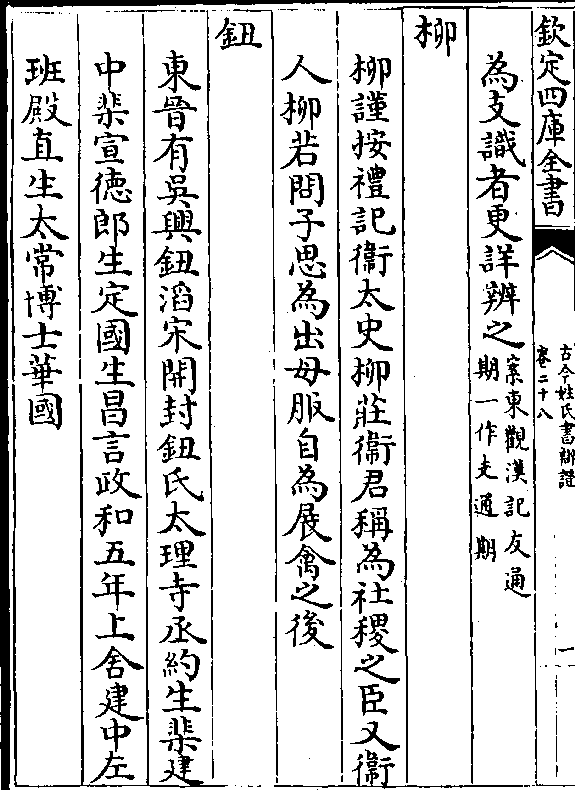 欽定四庫全書
古今姓氏書辯證
卷二十八
一
為支識者更詳辨之案東觀漢記友通
期一作支通期
柳
柳謹按禮記衞太史柳莊衞君稱為社稷之臣又衞
人柳若問子思為出母服自為展禽之後
鈕
東晉有吳興鈕滔宋開封鈕氏太理寺丞約生棐建
中棐宣德郎生定國生昌言政和五年上舍建中左
班殿直生太常博士華國